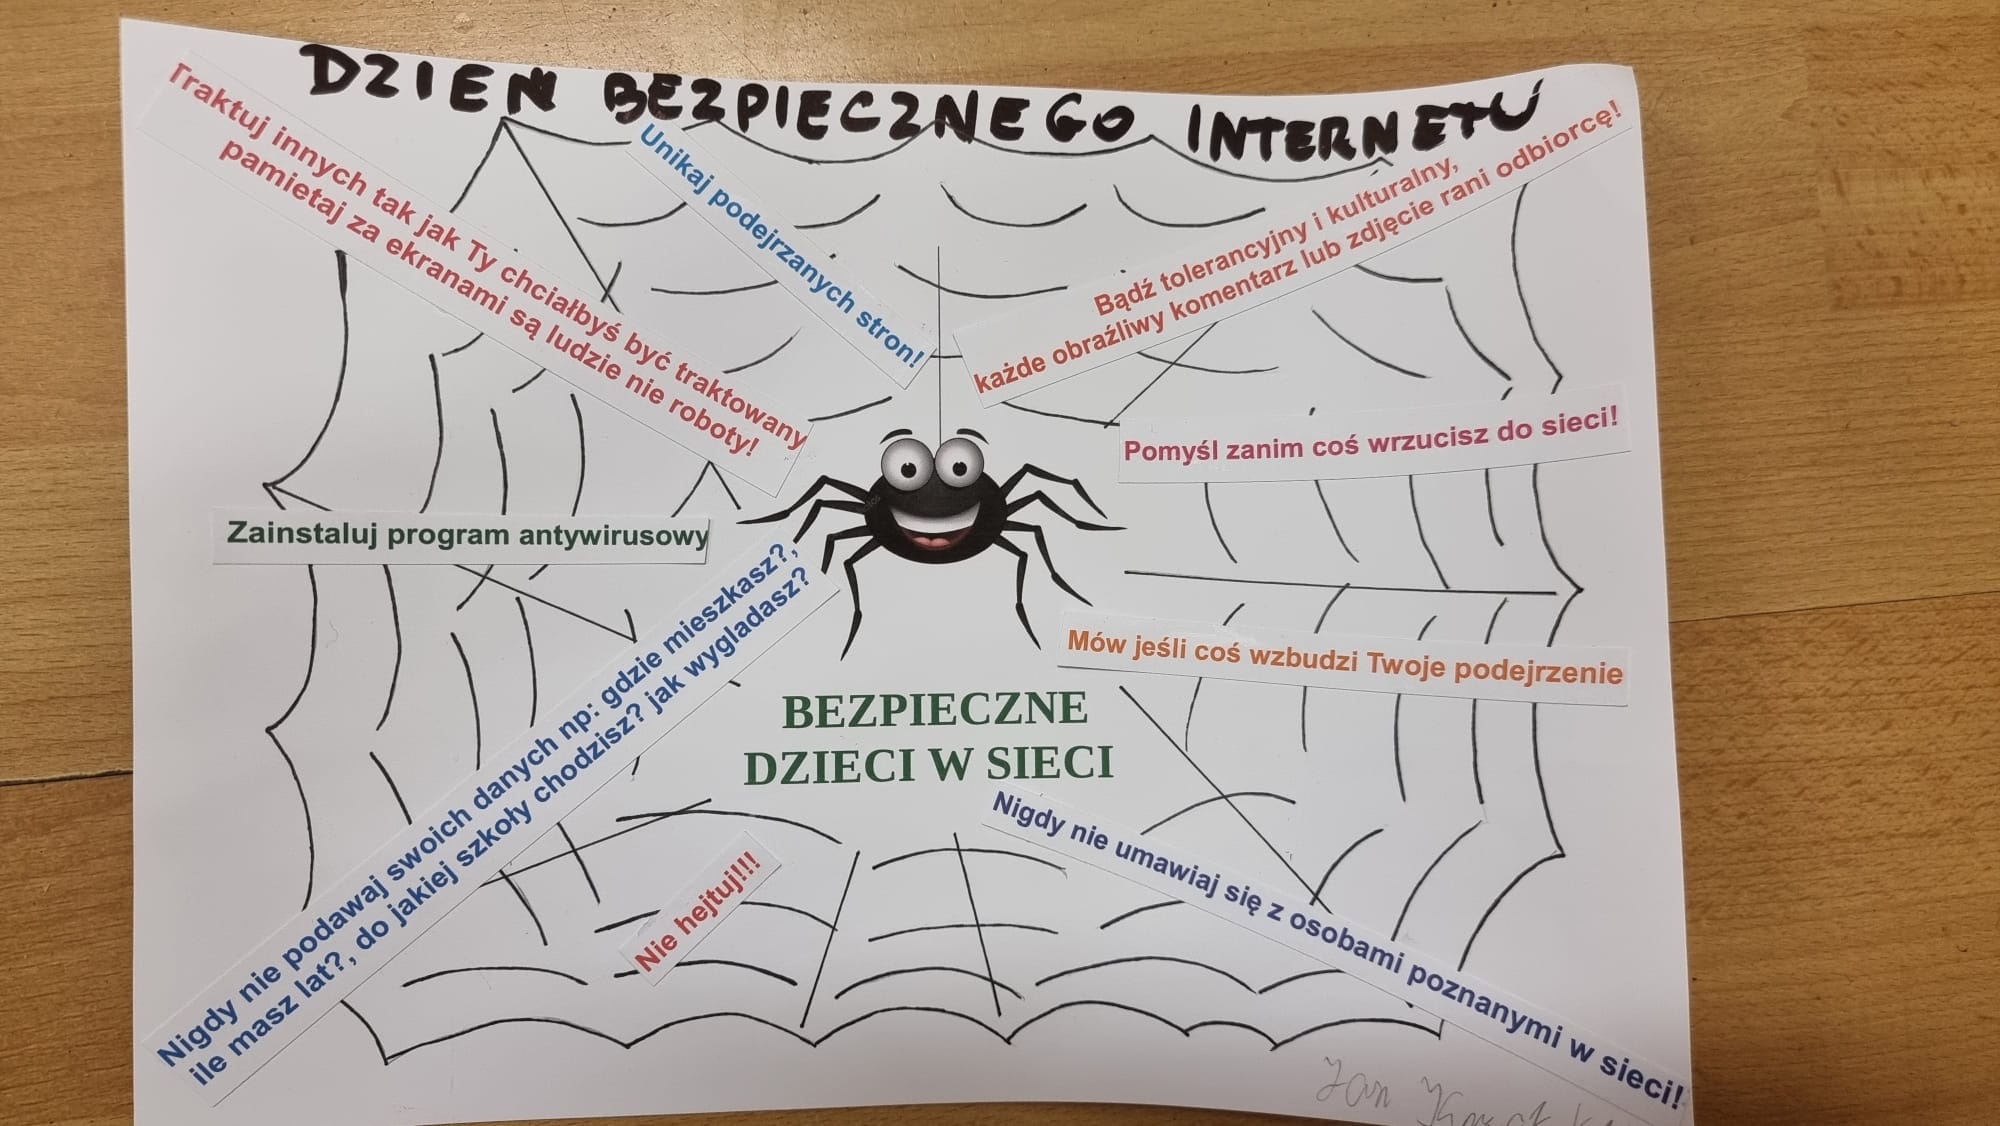 DZIEŃ BEZPIECZNEGO INTERNETU
Traktuj innych tak jak Ty chciałbyś być traktowany
pamietaj za ekranami są ludzie nie roboty!
Unikaj podejrzanych stron!
Bądź tolerancyjny i kulturalny,
każde obraźliwy komentarz lub zdjęcie rani odbiorcę!
Pomyśl zanim coś wrzucisz do sieci!
Zainstaluj program antywirusowy
Mów jeśli coś wzbudzi Twoje podejrzenie
Nigdy nie podawaj swoich danych np: gdzie mieszkasz?,
ile masz lat?, do jakiej szkoły chodzisz? jak wygladasz?
BEZPIECZNE
DZIECI W SIECI
Nie hejtuj!!!
Nigdy nie umawiaj się z osobami poznanymi w sieci!
Jan